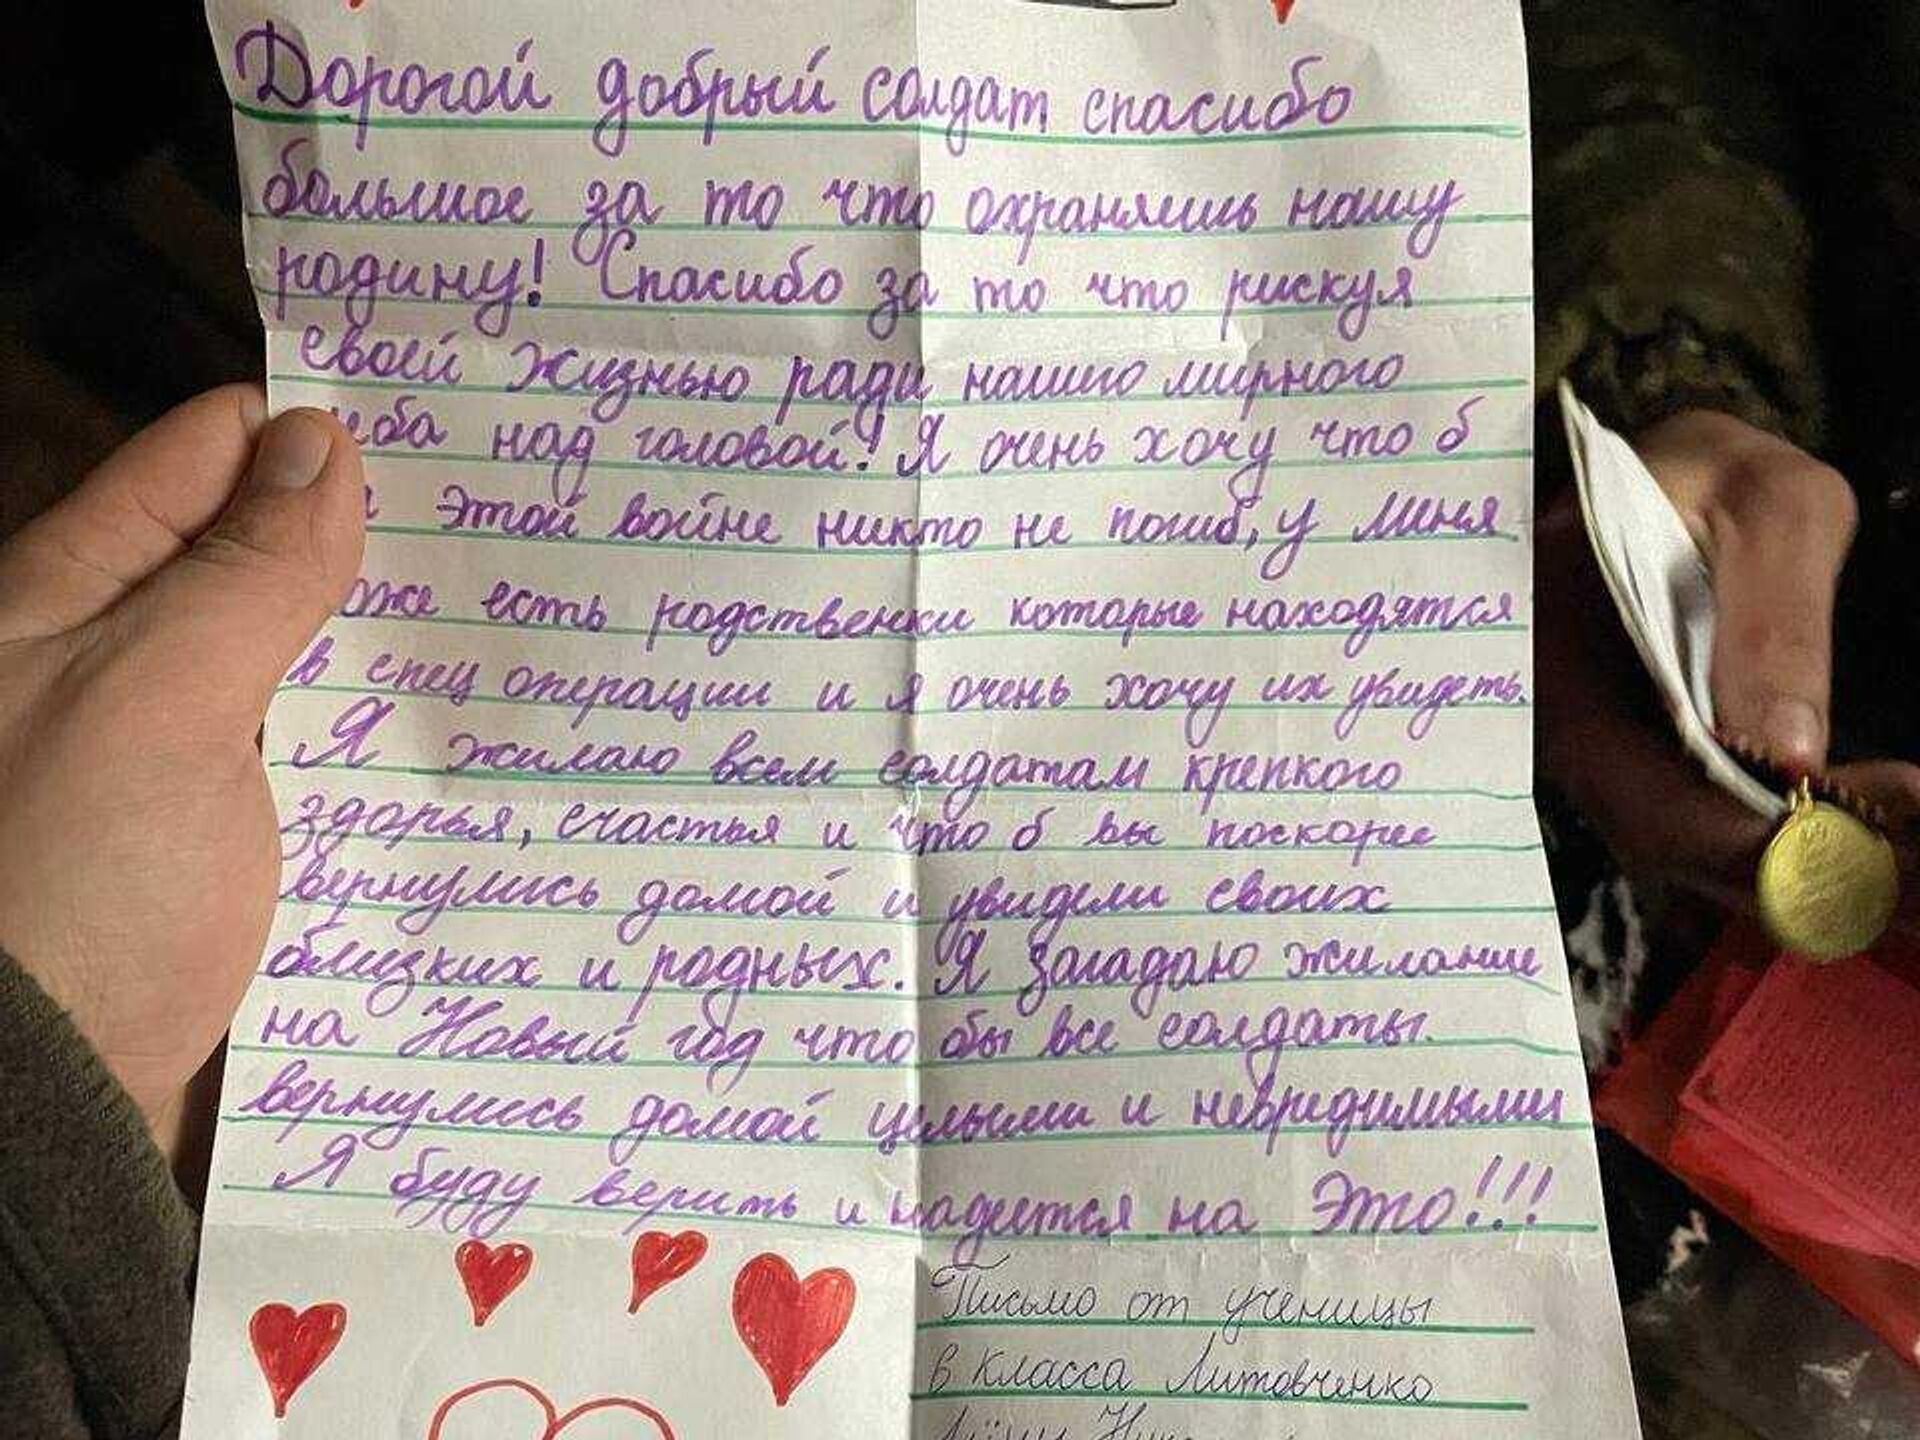 Дорогой добрый солдат спасибо
большое за то что охраняешь нашу
родину! Спасибо за то что рискуя
своей жизнью ради нашего мирного
неба над головой! Я очень хочу что б
этой войне никто не погиб, у меня
оже есть родственки которые находятся
в спец операции и я очень хочу их увидеть.
Я жилаю всем солдатам крепкого
здорья, счастья и что б вы поскорее
вернулись домой и увидели своих
близких и родных. Я загадаю жилание
на Новый год что бы все солдаты.
вернулись домой целыми и невредимыми
Я буду верить и надеется на Это!!!
Письмо от ученицы
6 класса Литовченко